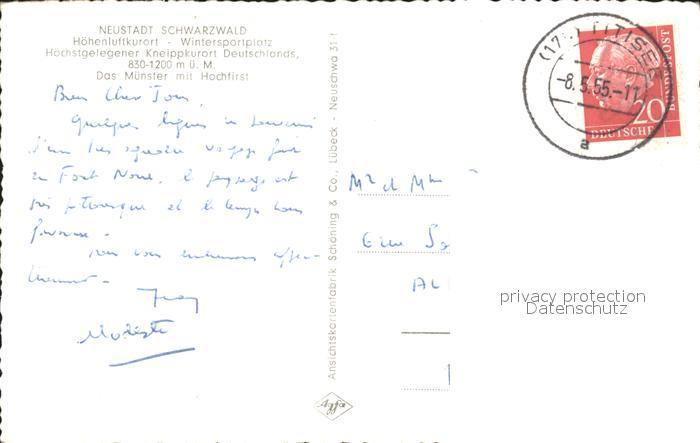 NEUSTADT SCHWARZWALD
Höhenluftkurort - Wintersportplatz
Höchstgelegener Kneippkurort Deutschlands,
830-1200 m ü. M.
Das Münster mit Hochfirst
Bien Cher Tons,
Quelques lignes en souvenir
d'un très agréable voyage fait
en Forêt Noire. le paysage est
très pittoresque et le temps nous
favorise.
nous vous embrassons affec-
tueusement -
Modeste
Ansichtskartenfabrik Schöning & Co., Lübeck - Neuschwa 31 f
Agfa
TITISEE
-8.5.55.-11
a
20
DEUTSCHE
BUNDESPOST
Mr et Mme
privacy protection
Datenschutz